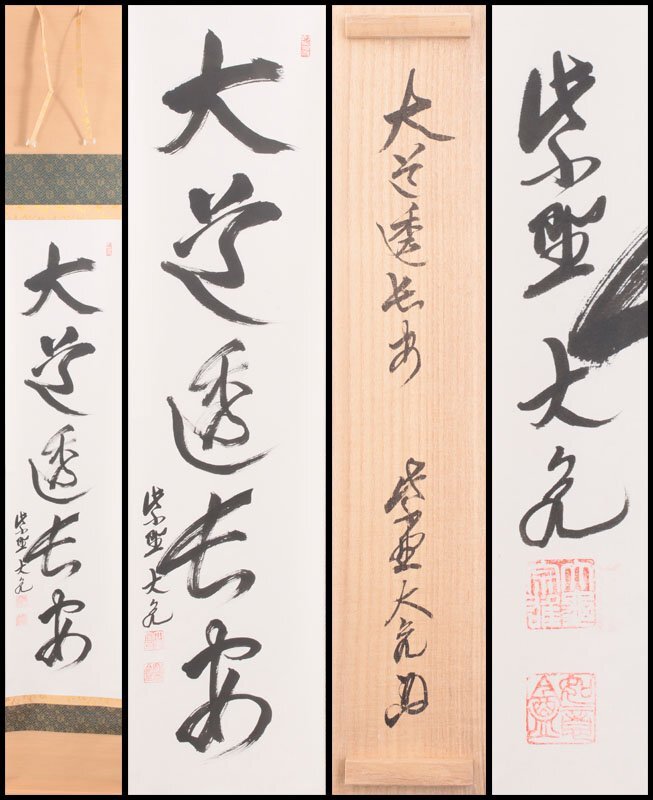 大道透長安
紫野 大
大道透長安
紫野 大
大道透長安
紫野 大
紫野 大